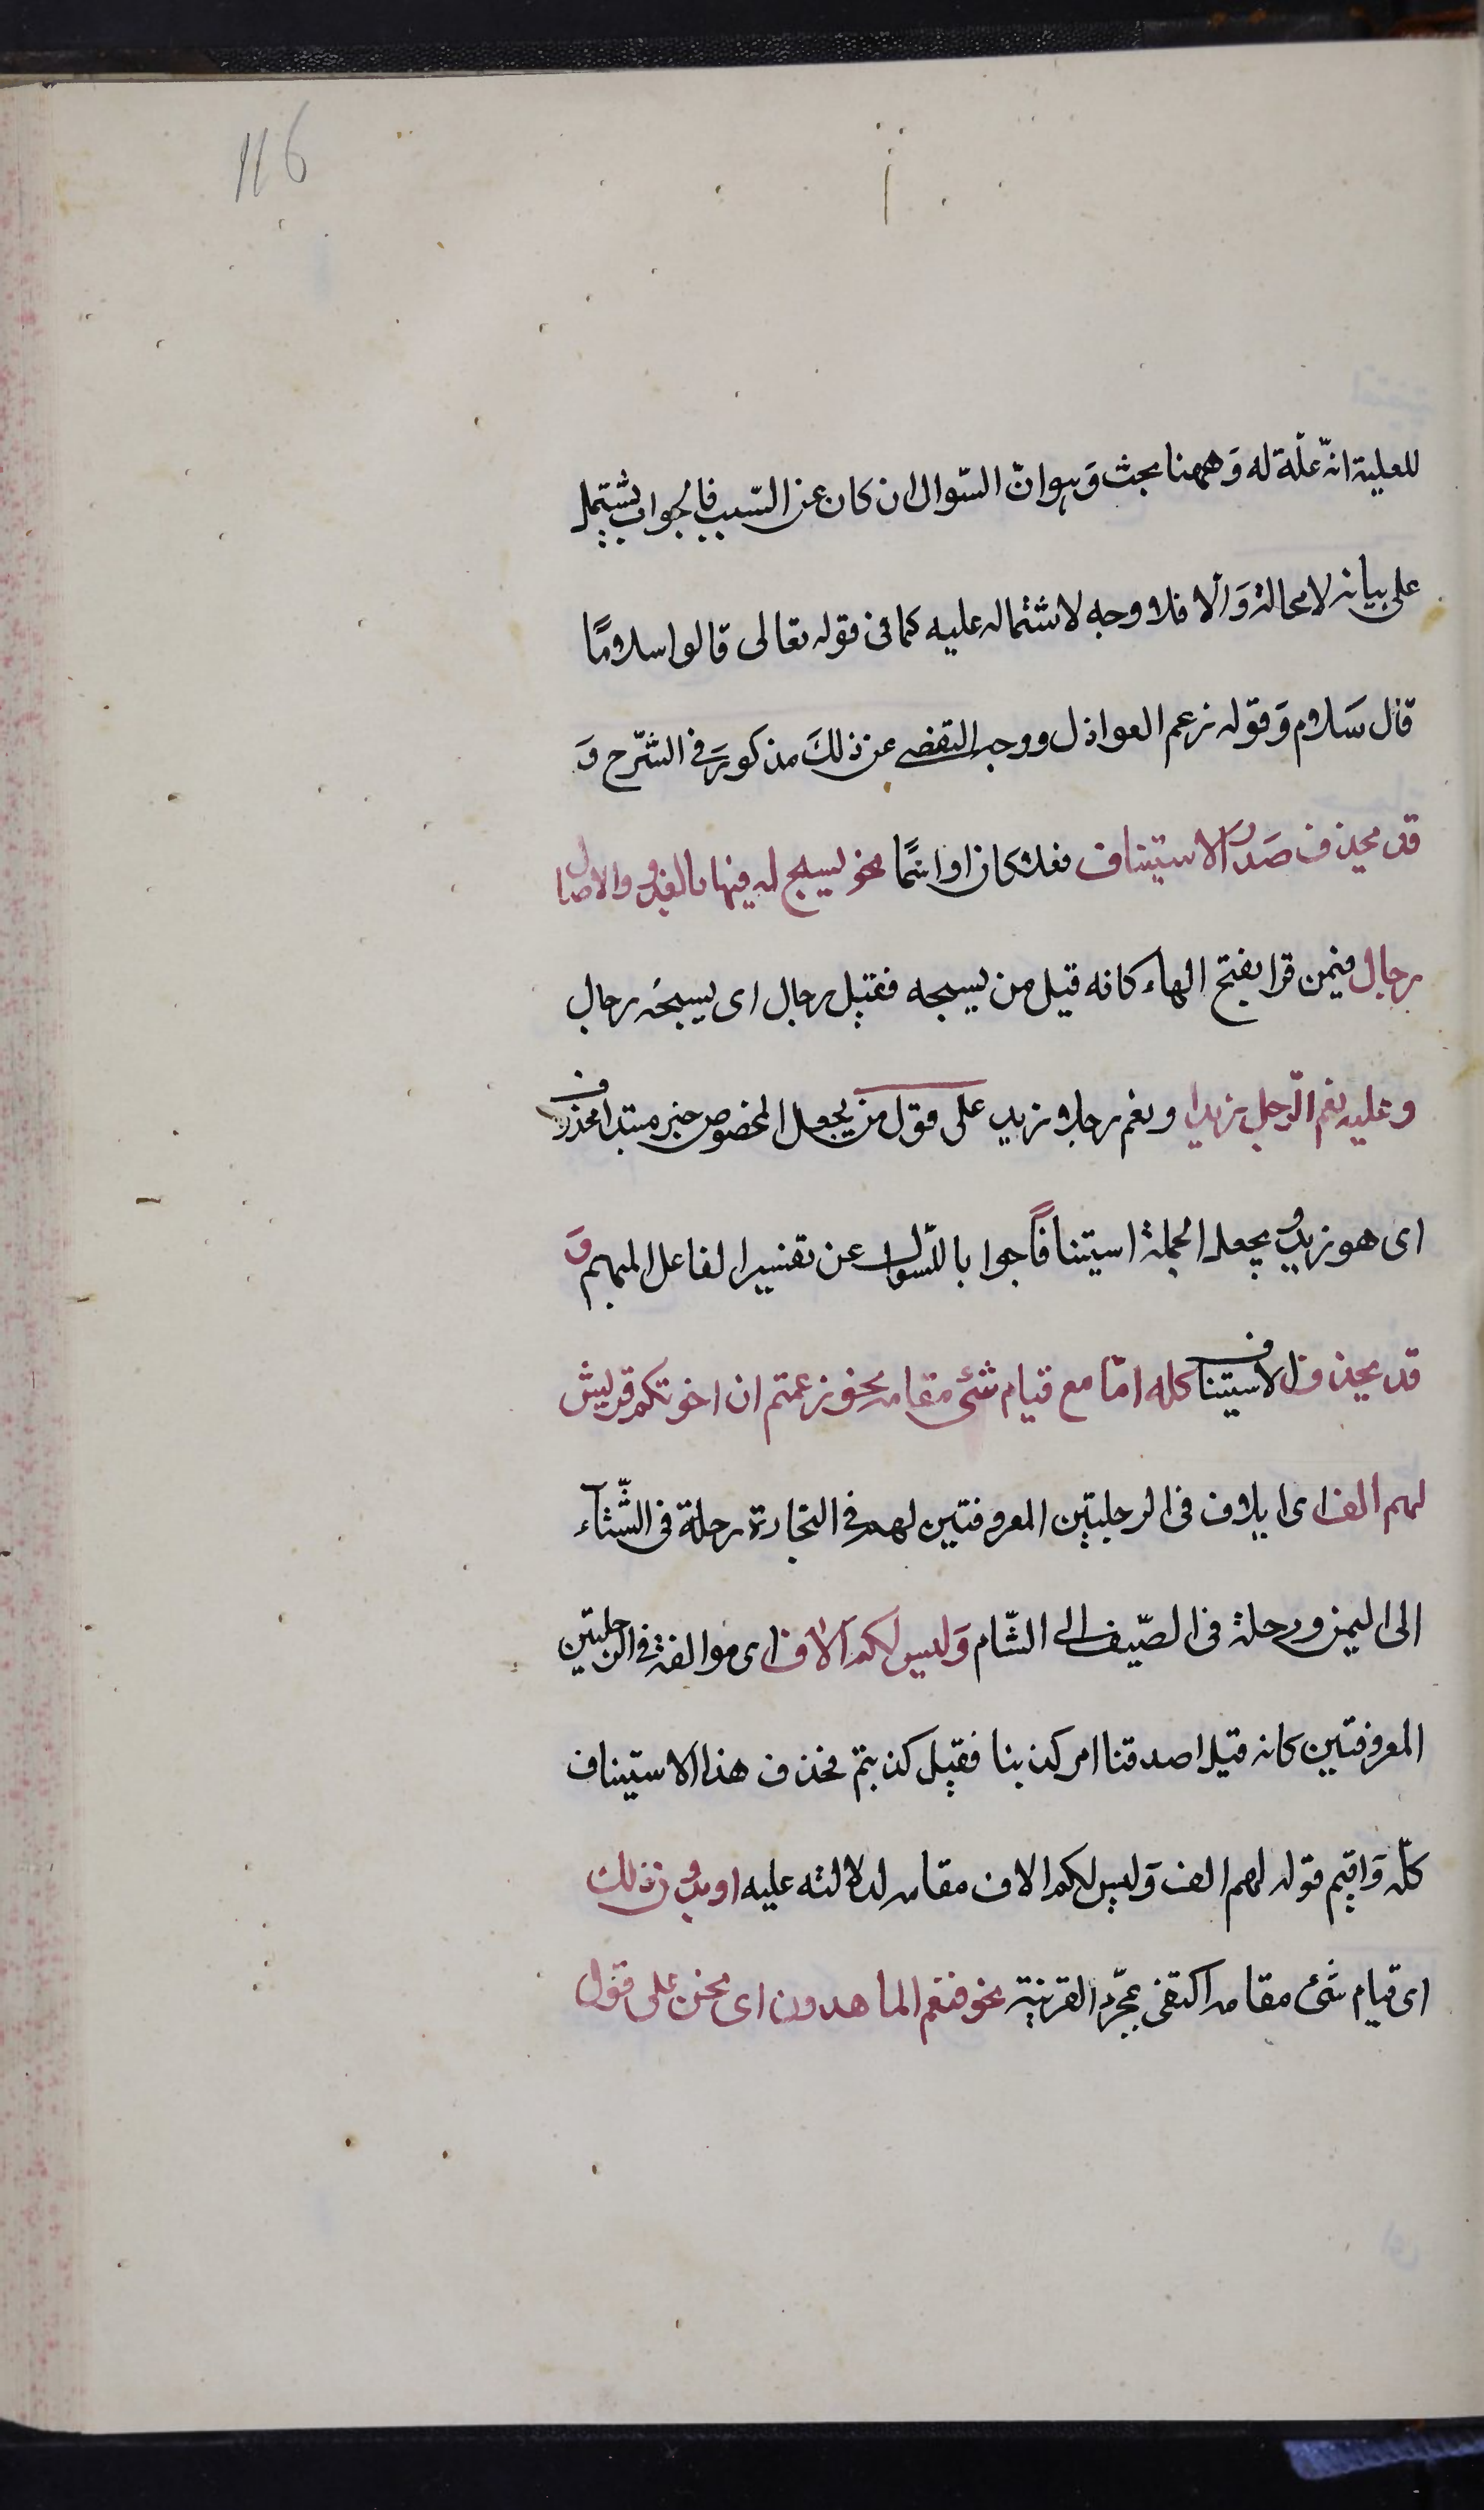 116
للعلية انّه علّة له وَههنا بحث وَهوانّ السّوال ان كان عن السّبب فالجواب يشتمل
على بيانه لا محالة وَالّا فلا وجه لاشتماله عليه كما فى قوله تعالى قالوا سلامًا
قال سَلام وَقوله زعم العواذل ووجه التفصى عن ذلكَ مذكور فى الشّرح وَ
قد يحذف صَدرُ الاستيناف فعلا كان او اسمًا نحو يسبح له فيها بالغدوّ والاصال
رجال فيمن قرا بفتح الهاء كانه قيل من يسبحه فقيل رجال اى يسبحَه رجال
وعليه نعم الرّجل زيد او نعم رجلا زيد على قول من يجعل المخصوص خبر مبتدا محذوف
اى هو زيد ويجعل الجملة استينافاً جوابا للسّوال عن تفسير الفاعل المبهم وَ
قد يحذف الاستيناف كله امّا مع قيام شئ مقامه نحو زعمتم ان اخوتكم قريش
لهم الف اى ايلاف فى الرحلتين المعروفتين لهم فى التجارة رحلة فى الشّتآء
الى اليمن ورحلة فى الصّيف الى الشّام وَليس لكم آلاف اى موالفة فى الرحلتين
المعروفتين كانه قيل اصدقنا ام كذبنا فقيل كذبتم فحذف هذا الاستيناف
كلّه وَاقيم قوله لهم الف وَليس لكم الاف مقامه لدلالته عليه او بدون ذلك
اى قيام شئ مقامه اكتفى بمجرّد القرينة نحو فنعم الماهدون اى نحن على قول